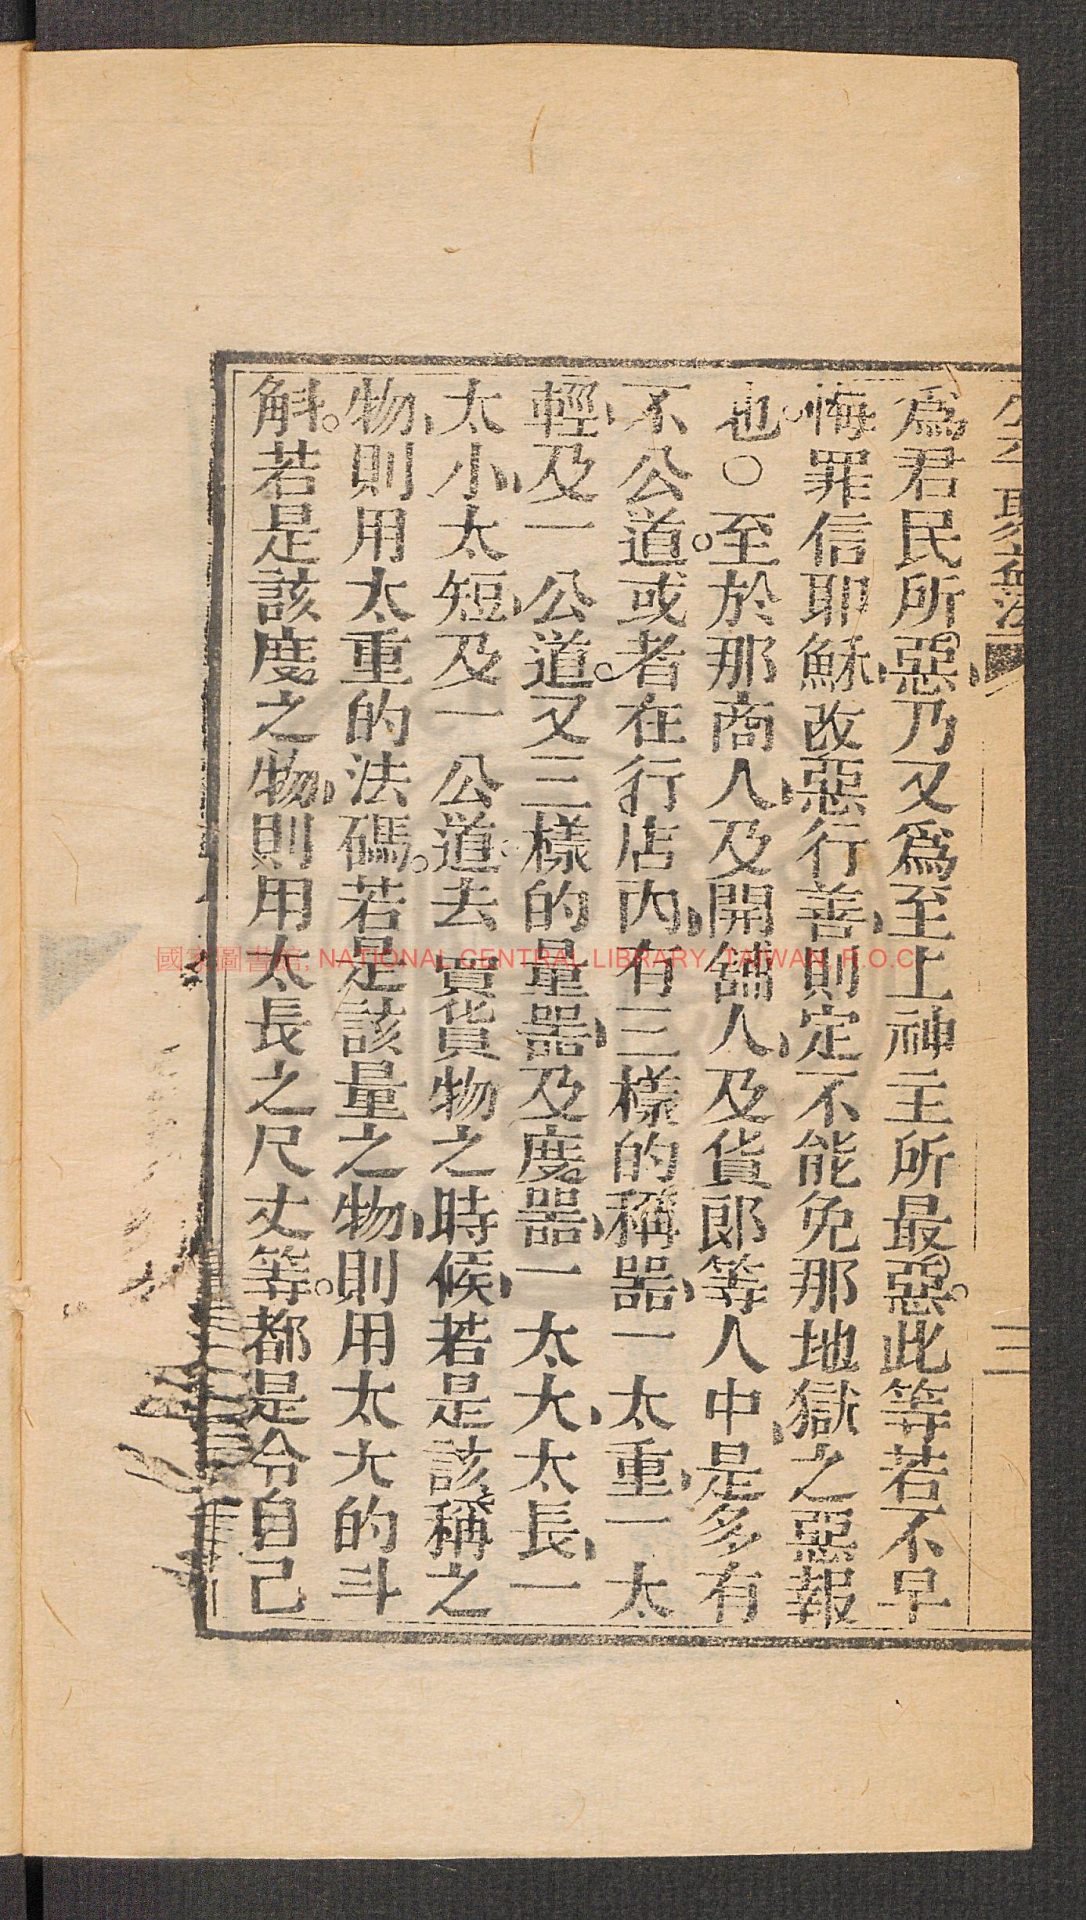 三
爲君民所惡、乃又爲至上神主所最惡。此等若不早
悔罪信耶穌、改惡行善、則定不能免那地獄之惡報
也。○至於那商人、及開舖人、及貨郎等人中、是多有
不公道。或者在行店內、有三樣的稱器、一太重、一太
輕、及一公道。又三樣的量器、及度器、一太大、太長、一
太小、太短、及一公道。去買貨物之時候、若是該稱之
物、則用太重的法碼。若是該量之物、則用太大的斗
斛。若是該度之物、則用太長之尺丈等。都是令自己
國家圖書館, NATIONAL CENTRAL LIBRARY, TAIWAN, R.O.C